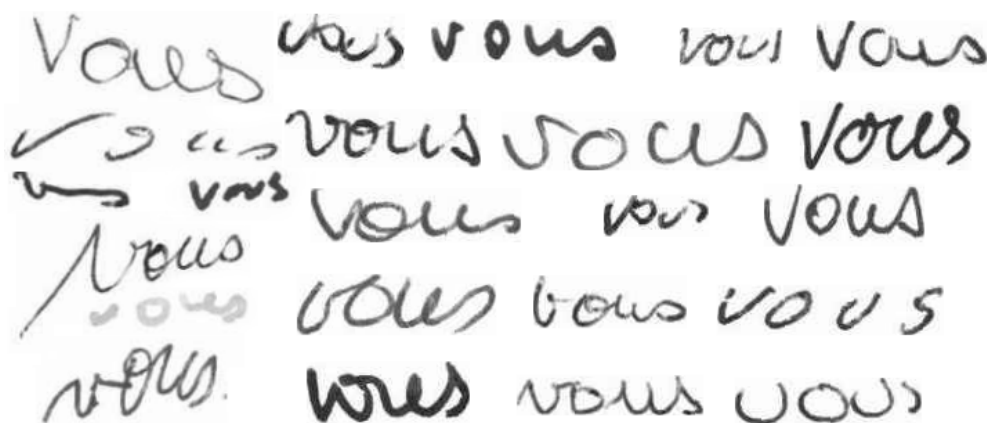 vous vous vous vous vous
vous vous vous vous
vous vous vous vous vous
vous
vous vous vous vous
vous vous vous vous